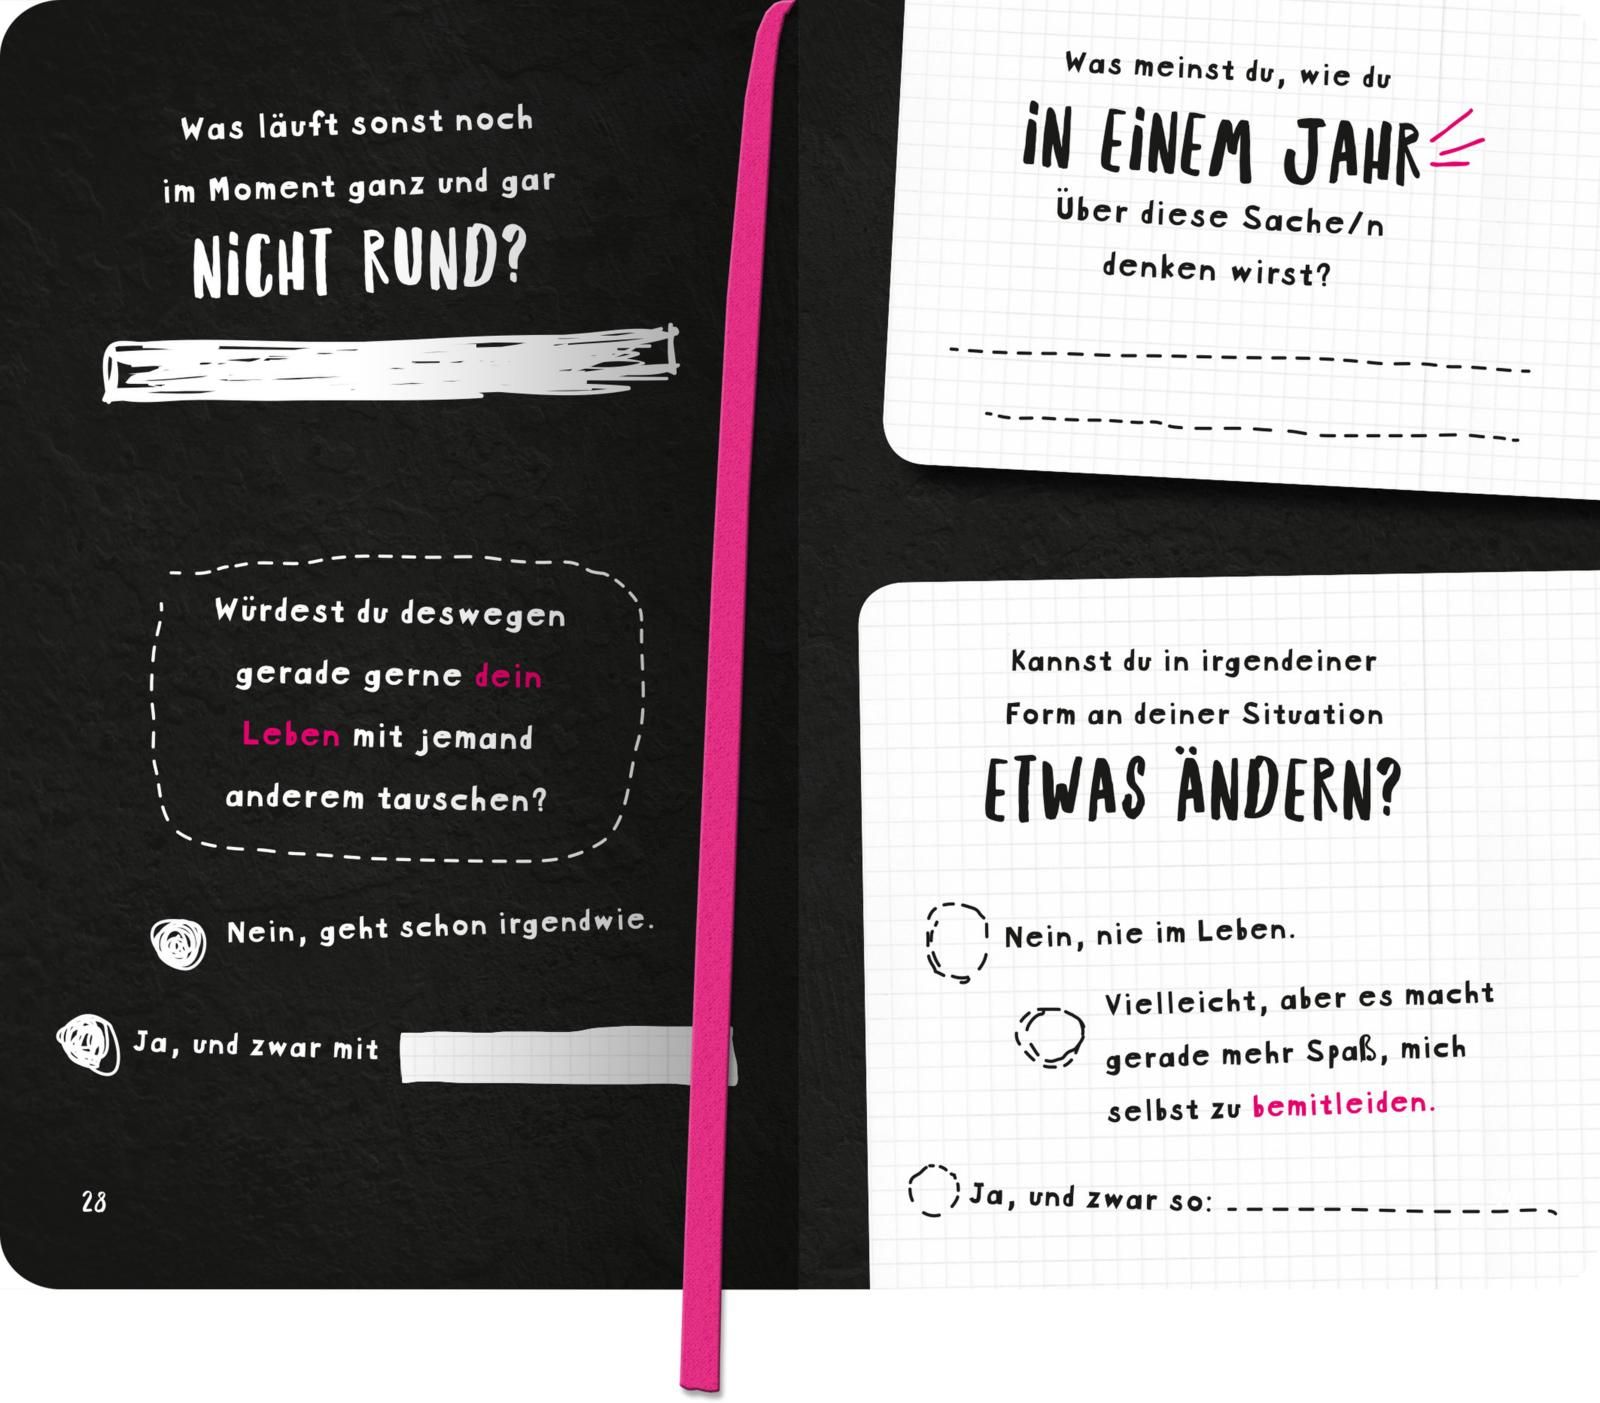 Was läuft sonst noch
im Moment ganz und gar
NiCHT RUND?
Würdest du deswegen
gerade gerne dein
Leben mit jemand
anderem tauschen?
Nein, geht schon irgendwie.
Ja, und zwar mit
28
Was meinst du, wie du
iN EiNEM JAHR
Über diese Sache/n
denken wirst?
Kannst du in irgendeiner
Form an deiner Situation
ETWAS ÄNDERN?
Nein, nie im Leben.
Vielleicht, aber es macht
gerade mehr Spaß, mich
selbst zu bemitleiden.
Ja, und zwar so: